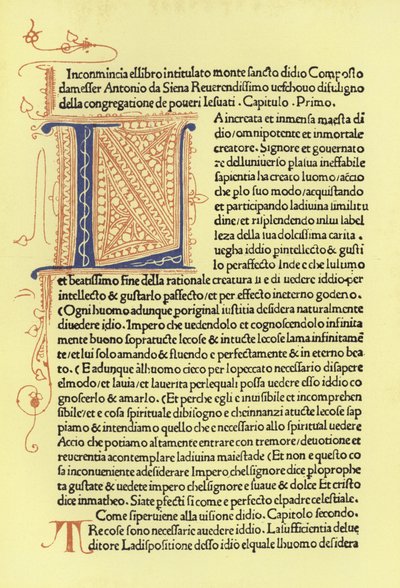 Inconmincia elsibro intitulato monte sancto didio Composto
damesser Antonio da Siena Reuerendissimo ueschouo difuligno
della congregatione de poueri Iesuati . Capitulo . Primo .
LA increata et inmensa maesta di
dio/omnipotente et inmortale
creatore . Signore et gouernato
re delluniuerso plasua ineffabile
sapientia ha creato luomo/accio
che plo suo modo/acquistando
et participando ladiuina similitu
dine/et risplendendo inlui label
leza della sua dolcissima carita .
uegha iddio pintellecto & gusti
lo peraffecto Inde e che lultimo
et beatissimo fine della rationale creatura si e di uedere iddio per
intellecto & gustarlo paffecto/et per effecto ineterno godeno .
( Ogni huomo adunque poriginal iustitia desidera naturalmente
diuedere idio . Impero che uedendolo et cognoscendolo infinita
mente buono sopratucte le cose & intucte le cose lama infinitamē
te/et lui solo amando & fluendo e perfectamente & in eterno bea
to . ( E adunque allhuomo cieco per lopeccato necessario disapere
elmodo/et lauia/et lauerita perlequali possa uedere esso iddio co
gnoscerlo & amarlo . ( Et perche egli e inuisibile et incomprehen
sibile/et e cosa spirituale dibisogno e cheinnanzi atucte lecose sap
piamo & intendiamo quello che e necessario allo spiritual uedere
Accio che potiamo altamente entrare con tremore/deuotione et
reuerentia acontemplare ladiuina maiestade ( Et non e questo co
sa inconueniente adesiderare Impero chelsignore dice plo prophe
ta gustate & uedete impero chelsignore e suaue & dolce Et cristo
dice inmatheo . Siate pfecti si come e perfecto elpadre celestiale .
Come siperuiene alla uisione didio . Capitolo secondo .
TRe cose sono necessarie auedere iddio . La sufficientia deluе
ditore La dispositione desso idio elquale lhuomo desidera